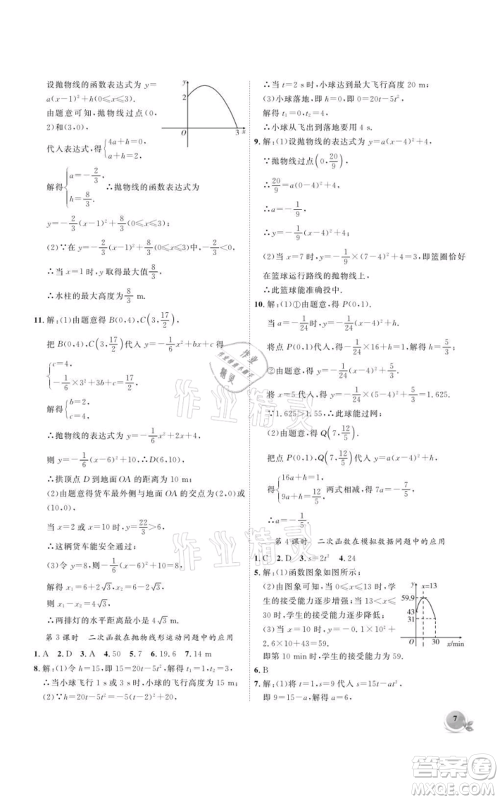 设抛物线的函数表达式为 y=
a(x-1)²+h(0≤x≤3).
由题意可知,抛物线过点(0,
2)和(3,0).
代入表达式,得{4a+h=0, a+h=2.
解得{a=-2/3, h=8/3. ∴抛物线的函数表达式为
y=-2/3(x-1)²+8/3(0≤x≤3).
(2)∵在 y=-2/3(x-1)²+8/3(0≤x≤3)中,
当 x=1 时,y 取得最大值 8/3.
∴水柱的最大高度为 8/3 m.
11. 解:(1)由题意得 B(0,4),C(3,17/2).
把 B(0,4),C(3,17/2)代入 y=-1/6x²+bx+c 得
{c=4, -1/6×3²+3b+c=17/2.
解得{b=2, c=4.
∴抛物线的表达式为 y=-1/6x²+2x+4.
则 y=-1/6(x-6)²+10.
∴拱顶点 D 到地面 OA 的距离为 10 m.
(2)由题意得货车最外侧与地面 OA 的交点为(2,
0)或(10,0).
当 x=2 或 x=10 时,y=22/3>6.
∴这辆货车能安全通过;
(3)令 y=8,则-1/6(x-6)²+10=8.
解得 x₁=6+2√3,x₂=6-2√3.
则 x₁-x₂=4√3.
∴两排灯的水平距离最小是 4√3 m.
第 3 课时 二次函数在抛物线形运动问题中的应用
1. A 2. D 3. A 4. 50 5. > 6. 19.6 7. 14 m
8. 解:(1)令 h=15,即 15=20t-5t²,解得 t₁=1,t₂=3.
∴当小球飞行 1 s 或 3 s 时,小球的飞行高度是 15 m;
(2)∵h=20t-5t²=-5(t-2)²+20.
∴当 t=2 s 时,小球达到最大飞行高度 20 m;
(3)小球落地,即 h=0,即 0=20t-5t².
解得 t=4.
∴小球从飞出到落地要用 4 s.
9. 解:(1)设抛物线的表达式为 y=a(x-4)²+4,
∵抛物线过点(0,20/9).
∴20/9=a(0-4)²+4.
∴a=-1/9.
∴y=-1/9(x-4)²+4.
(2)当 x=7 时,y=-1/9×(7-4)²+4=3,即篮圈恰好
在篮球运行路线的抛物线上.
∴此篮球能准确投中.
10. 解:(1)①由题意,得 P(0,1).
当 a=-1/24时,h=-1/24(x-4)²+h.
将点 P(0,1)代入,得-1/24×16+h=1,解得 h=5/3;
②由题意,得 h=-1/24(x-4)²+5/3.
把 x=5 代入,得 h=-1/24×(5-4)²+5/3=1.625.
∵1.625>1.55,∴此球能过网;
(2)由题意,得 Q(7,12/5).
把点 P(0,1),Q(7,12/5)代入 h=a(x-4)²+h,得
{16a+h=1, 9a+h=12/5. 两式相减,得 7a=-7/5.
∴a=-1/5.
第 4 课时 二次函数在模拟数据问题中的应用
1. C 2. D 3. s=2t² 4. 24
5. 解:(1)函数图象如图所示;
(2)由图象可知,当 0≤x≤13 时,学
生的接受能力逐步增强;当 13<x
≤30 时,学生的接受能力逐步降低;
(3)当 x=10 时,y=-0.1×10²+
2.6×10+43=59.
即第 10 min 时,学生的接受能力为 59.
6. B
7. 解:(1)将 s=9 代入表达式 s=15t-6t²,
即 9=15t-6t²,解得 t₁=1,t₂=
y
2
O
3
x
y
x=13
59.9
43
31
O
13
30
x/min
作业精灵
作业精灵
作业精灵
7